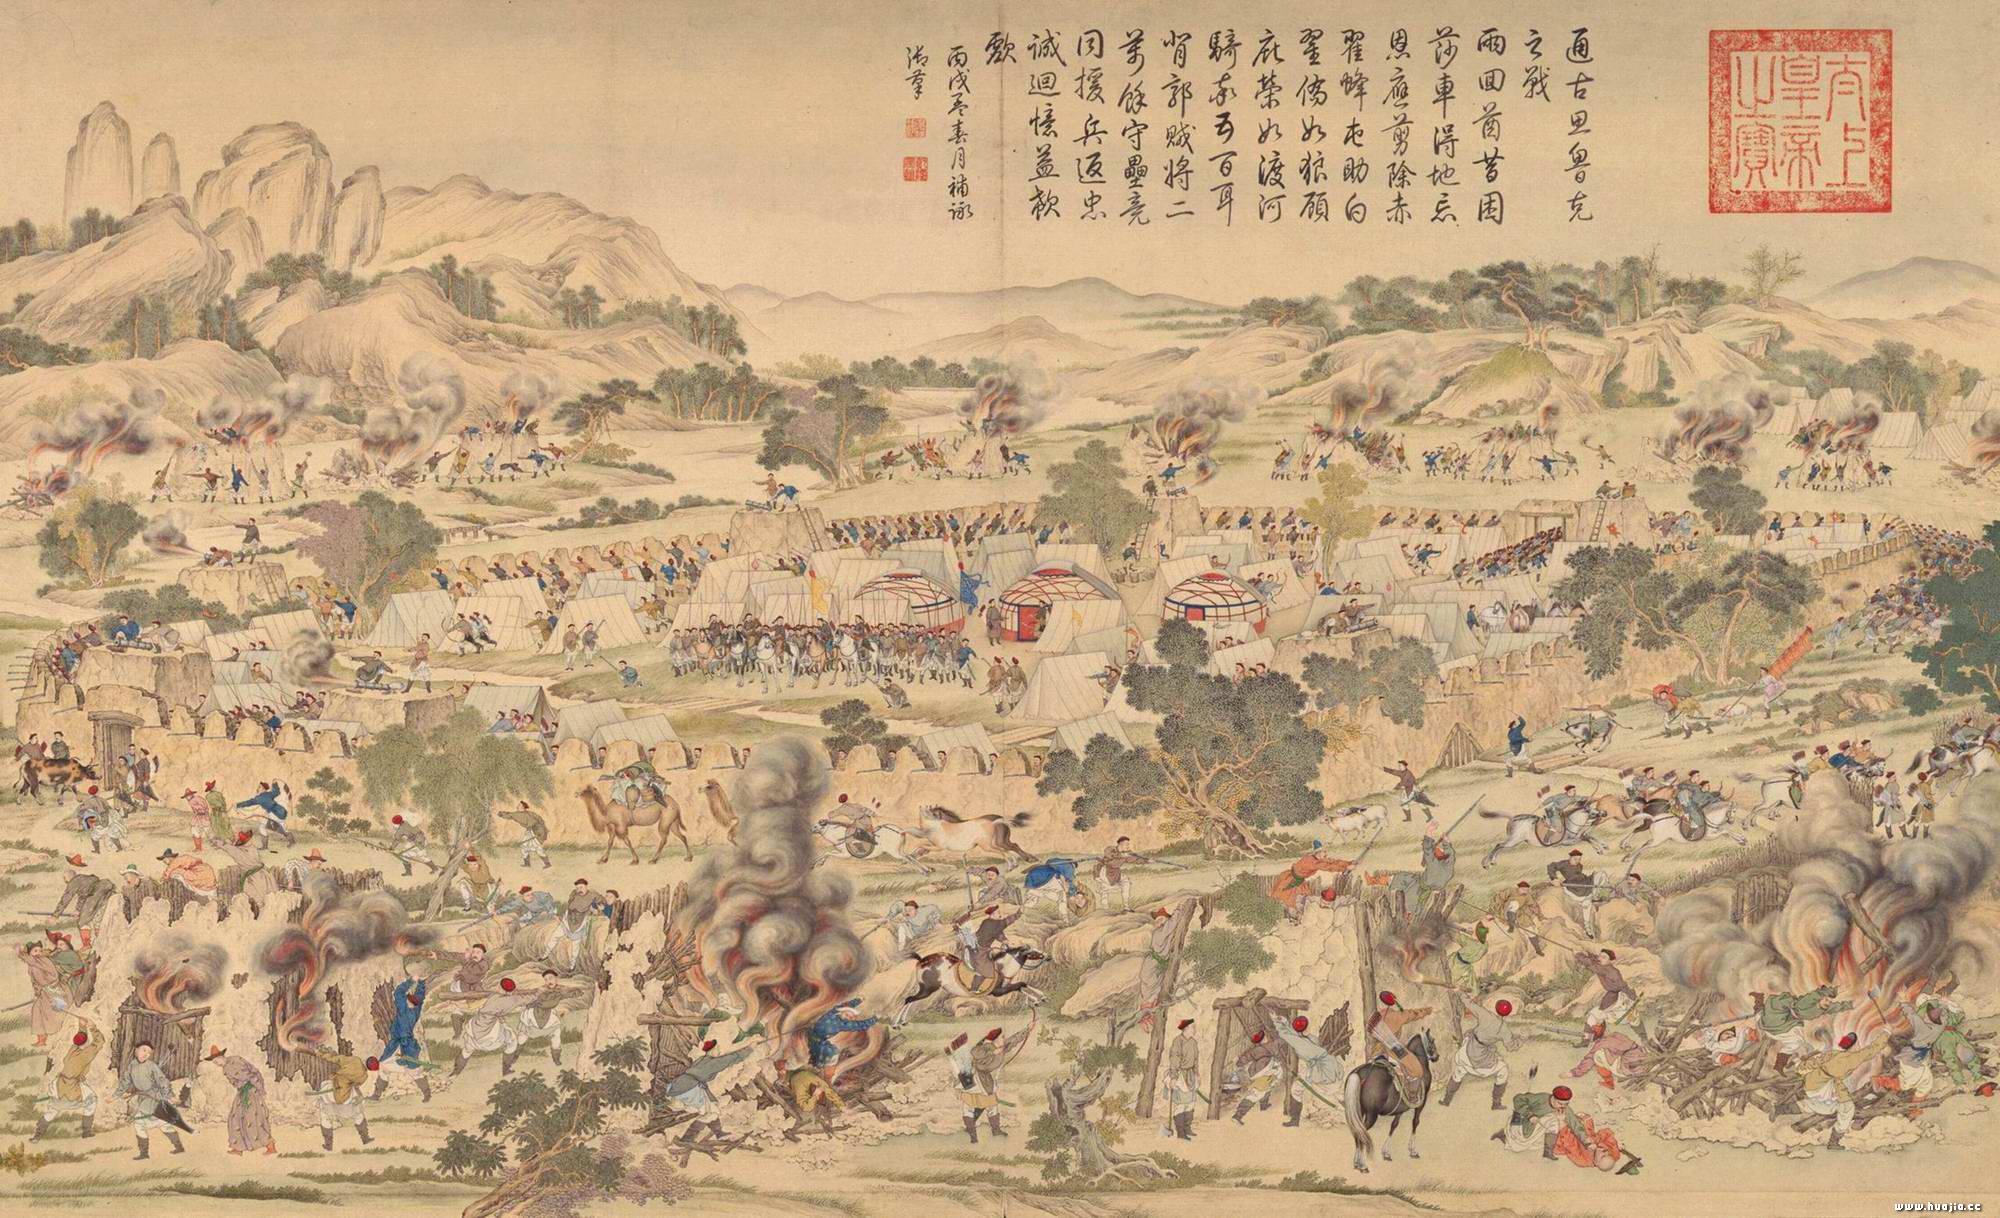 太上
皇帝
之寶
通古思魯克
之戰
兩回酋昔困
莎車得地忘
恩應剪除赤
翟蜂屯助白
翟僑如狼顧
庇榮如渡河
騎五百耳
背郭賊將二
萬餘守壘竟
同援兵返忠
誠迴憶益欷
歔
丙戌孟春月補詠
御筆
www.huajia.cc